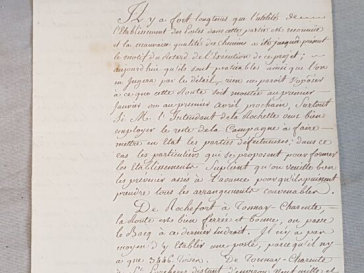 Il y a fort longtems que l'utilité de
l'Etablissement des Postes dans cette partie est reconnue
et la mauvaise qualité des chemins a été jusqu'à présent
le motif du retard de l'Execution de ce projet;
aujourd'hui qu'ils sont praticables ainsi que l'on
en jugera par les détails, rien ne paroit s'oposer
à ce que cette Route soit montée au premier
Janvier ou au premier avril prochain, Surtout
Si M. l'Intendant de la Rochelle veut bien
employer le reste de la Campagne à faire
mettre en Etat les parties défectueuses; dans ce
cas les particuliers qui se proposent pour former
les Etablissements, Suplient qu'on veuille bien
les prevenir assés à l'avance pour qu'ils puissent
prendre leurs arrangements convenables.
De Rochefort à Tonnay-Charente,
la Route est bien ferrée et bonne, on passe
le Bacq à ce dernier endroit. Il n'y a pas
moyen d'y Etablir une poste, parce qu'il n'y
a que 3446 toises. De Tonnay-Charente
à St. distant d'environ mille et